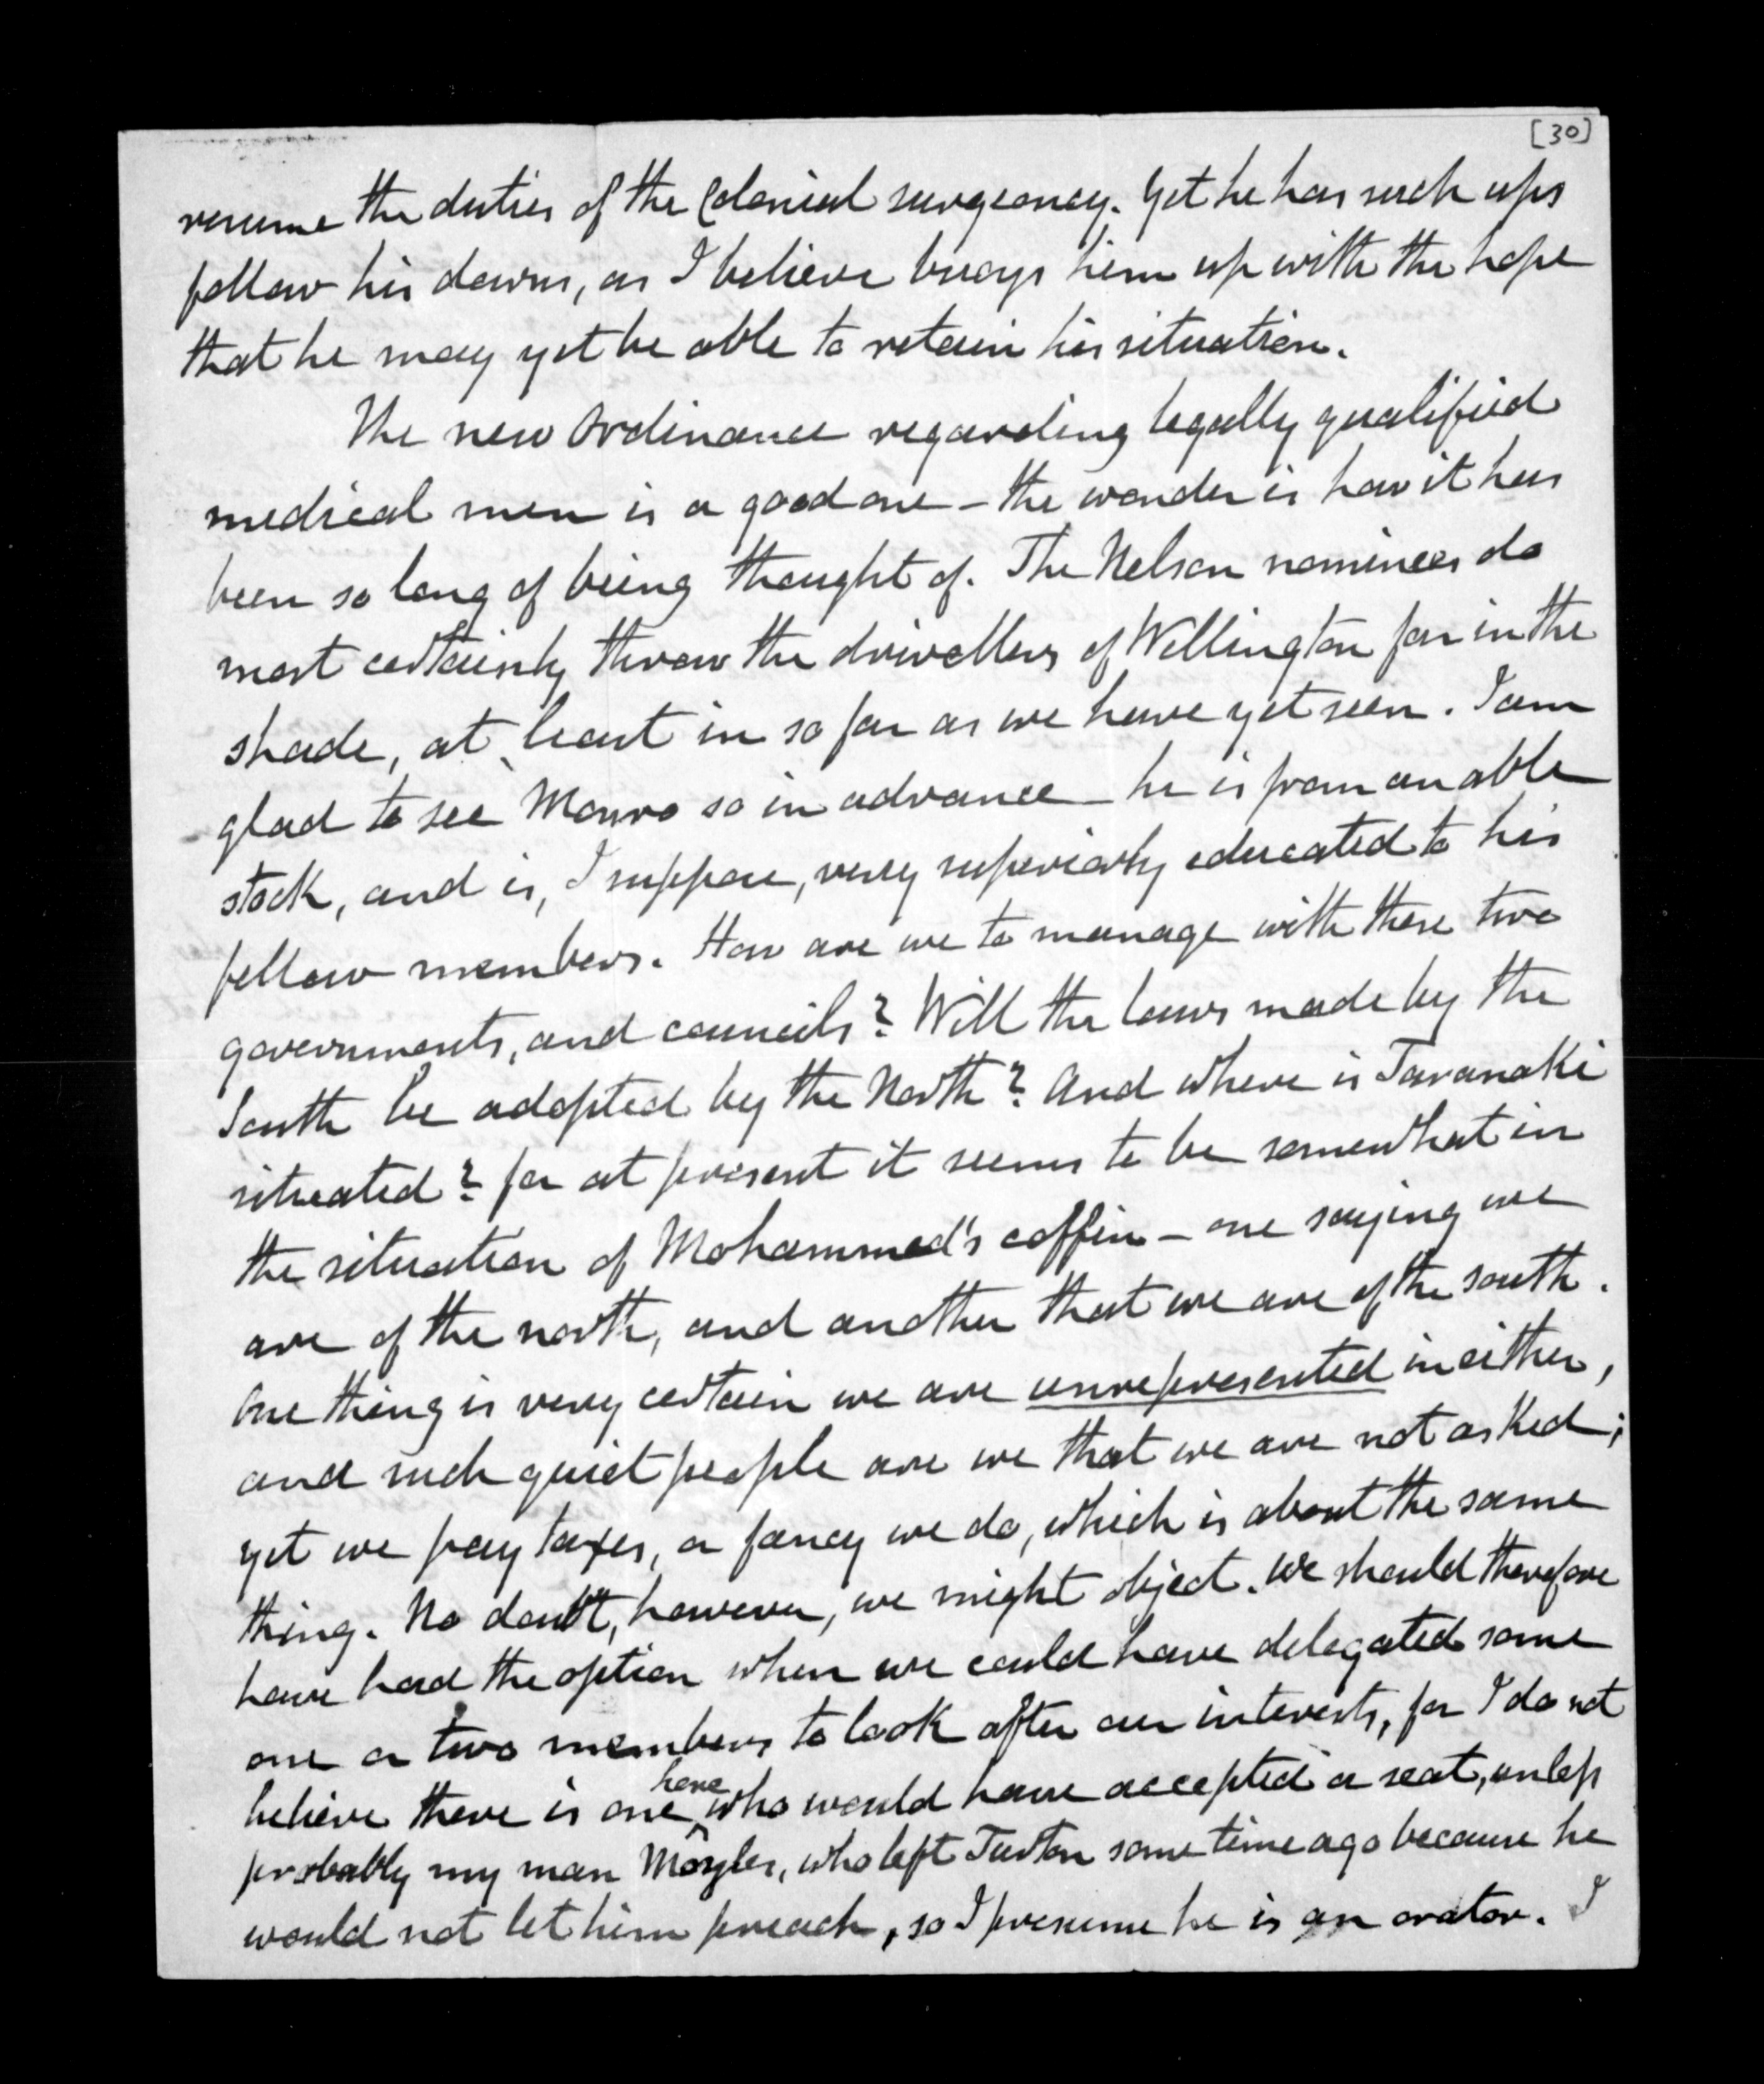 [30]
resume the duties of the Colonial surgeoncy. Yet he has such ups
follow his downs, as I believe buoys him up with the hope
that he may yet be able to retain his situation.
The new Ordinance regarding legally qualified
medical men is a good one - the wonder is how it has
been so long of being thought of. The Nelson nominees do
most certainly throw the drivellers of Wellington far in the
shade, at least in so far as we have yet seen. I am
glad to see Monro so in advance - he is from an able
stock, and is, I suppose, very superiorly educated to his
fellow members. How are we to manage with these two
governments, and councils? Will the laws made by the
South be adopted by the North? And where is Taranaki
situated? for at present it seems to be somewhat in
the situation of Mohammed's coffin - one saying we
are of the north, and another that we are of the south.
One thing is very certain we are unrepresented in either,
and such quiet people are we that we are not asked;
yet we pay taxes, or fancy we do, which is about the same
thing. No doubt, however, we might object. We should therefore
have had the option when we could have delegated some
one or two members to look after our interests, for I do not
believe there is one here who would have accepted a seat, unless
probably my man Moyles, who left Turton some time ago because he
would not let him preach, so I presume he is an orator. I